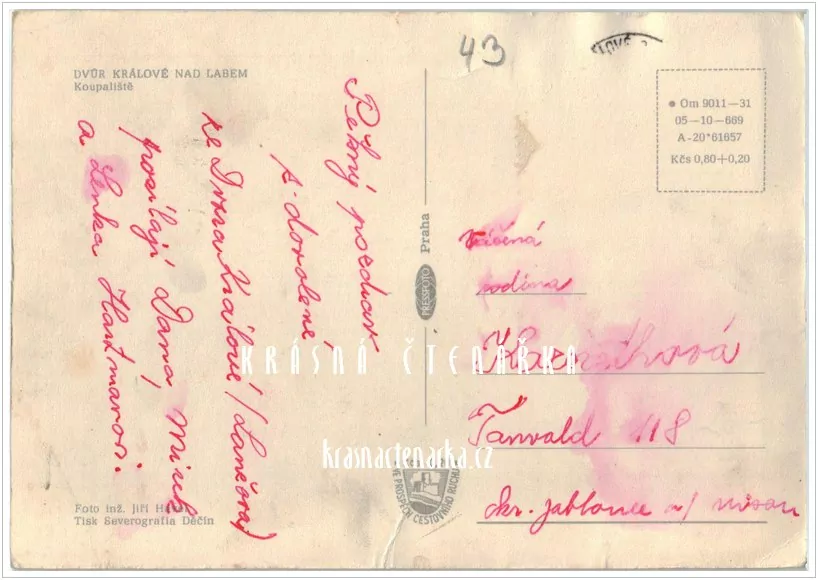 43
DVŮR KRÁLOVÉ NAD LABEM
Koupaliště
Pěkný pozdrav
z dovolené
ze Dvora Králové
posílají Dana, Mirek
a Lenka Hartmanovi.
Foto inž. Jiří
Tisk Severografia Děčín
PRESSFOTO Praha
● Om 9011—31
05—10—669
A-20*61657
Kčs 0,80+0,20
Vážená
rodina
Tanvald 118
okr. Jablonec n/ Nisou
VE PROSPĚCH CESTOVNÍHO RUCHU
KRÁSNÁ ČTENÁŘKA
krasnactenarka.cz